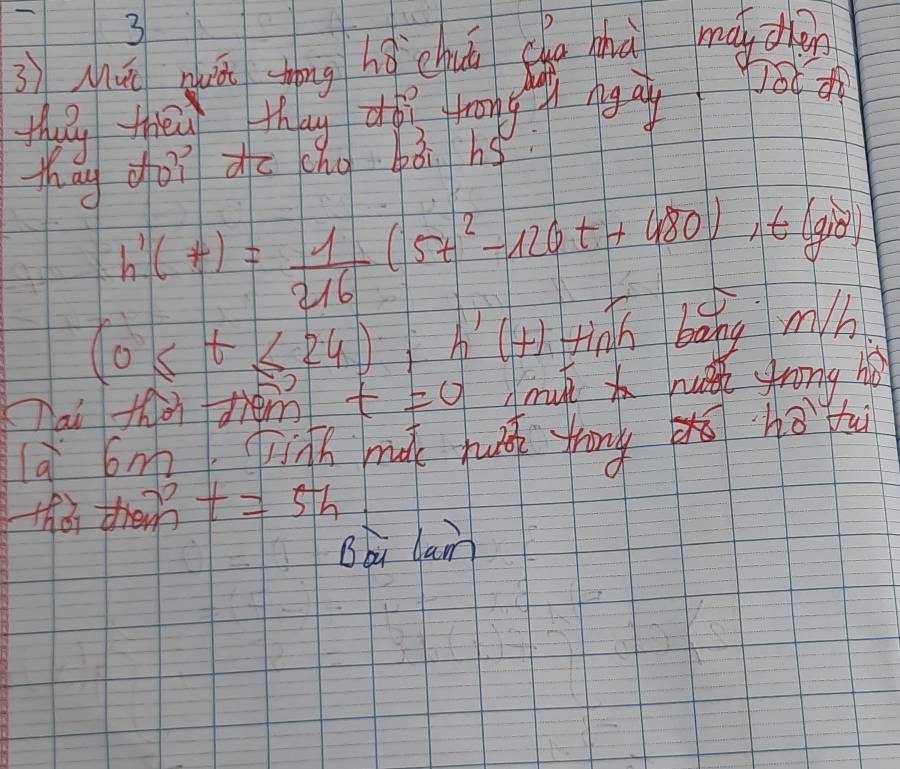 3
3) Mức nước trong hồ chứa của nhà máy điện
thủy triều thay đổi trong suốt 1 ngày. Tốc độ
thay đổi đc cho bởi hs:
h'(t) = 1/216 (5t² - 120t + 480), t (giờ)
(0 ≤ t ≤ 24), h'(t) tính bằng m/h.
Tại thời điểm t = 0, mức nước trong hồ
là 6m. Tính mức nước trong hồ tại
thời điểm t = 5h
Bài làm